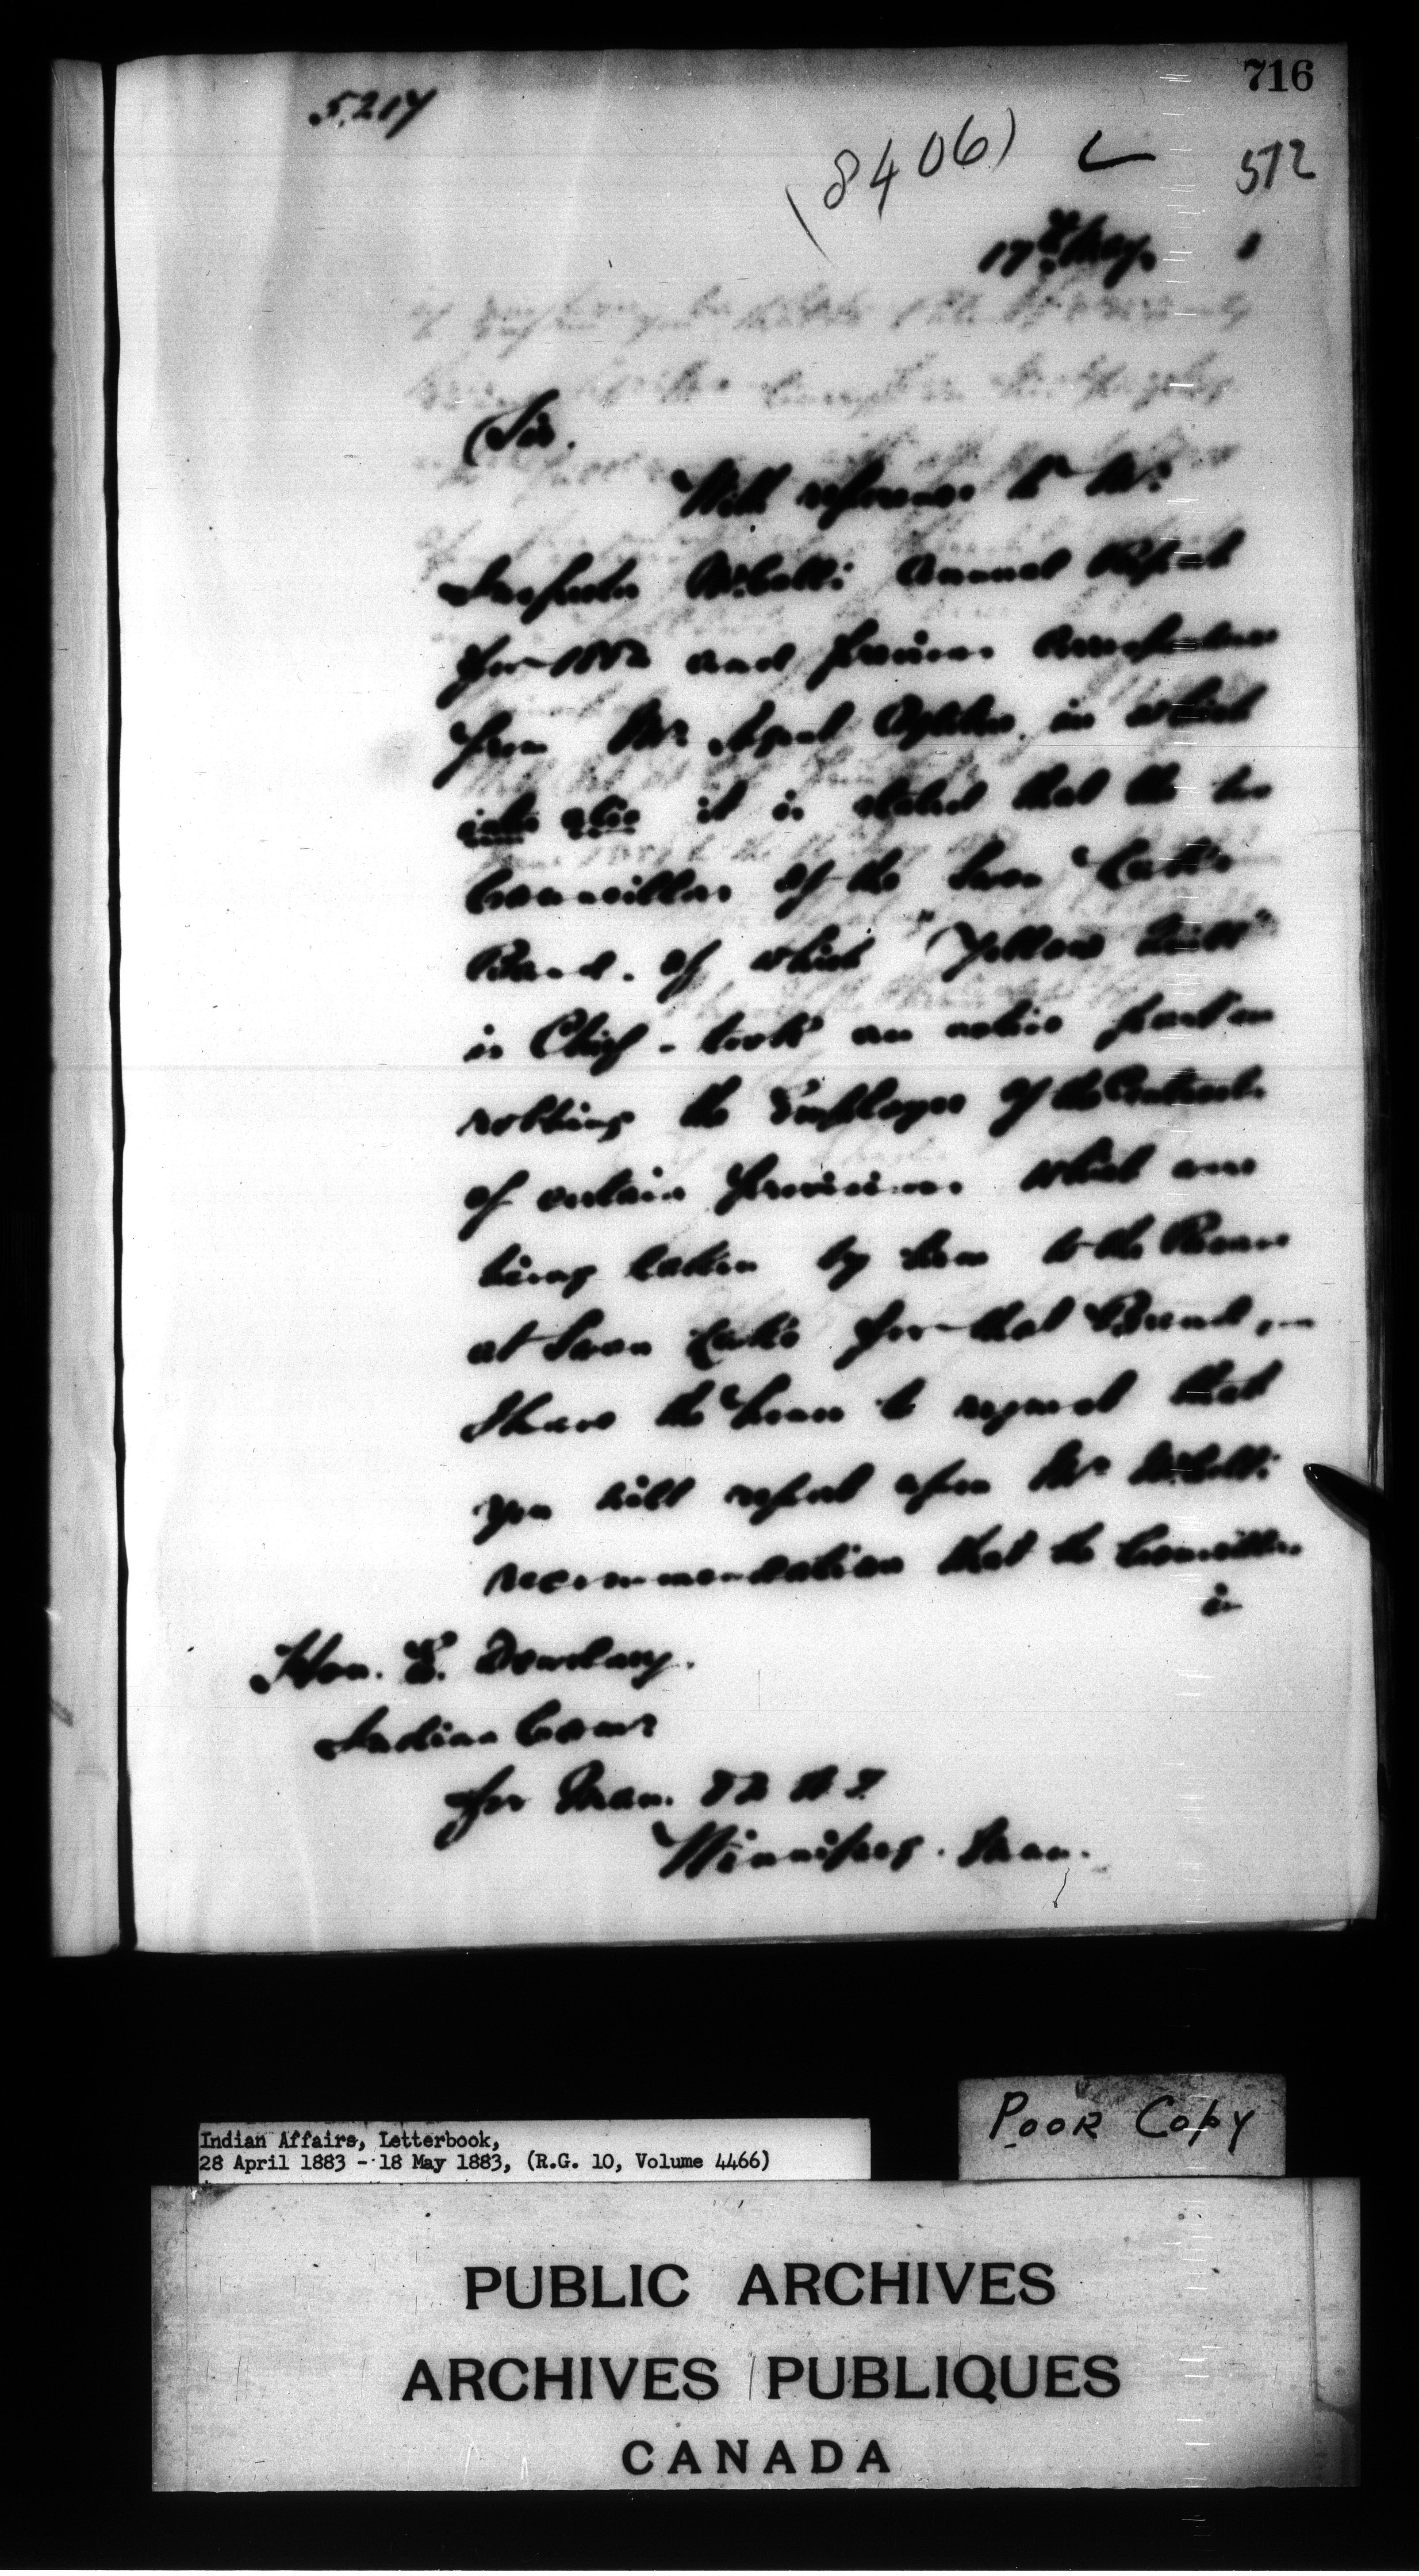 716
5217
(8406)
572
17th May
Sir.
With reference to Mr.
Inspector McColl's Annual Report
for 1882 and previous correspondence
from Mr Agent Ogletree, in which
inter alia it is stated that the two
Councillors of the Swan Lake
Band. of which "Yellow Quill"
is Chief - took an active part in
robbing the Employee of the Contractor
of certain provisions which were
being taken by him to the Reserve
at Swan Lake for that Band,
I have the honor to request that
you will report upon Mr McColl's
recommendation that the Councillors
in
Hon. E. Dewdney.
Indian Comr
for Man. & N.W.T.
Winnipeg. Man.
Poor Copy
Indian Affairs, Letterbook,
28 April 1883 - 18 May 1883, (R.G. 10, Volume 4466)
PUBLIC ARCHIVES
ARCHIVES PUBLIQUES
CANADA